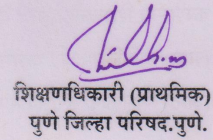 शिक्षणधिकारी (प्राथमिक)
पुणे जिल्हा परिषद.पुणे.